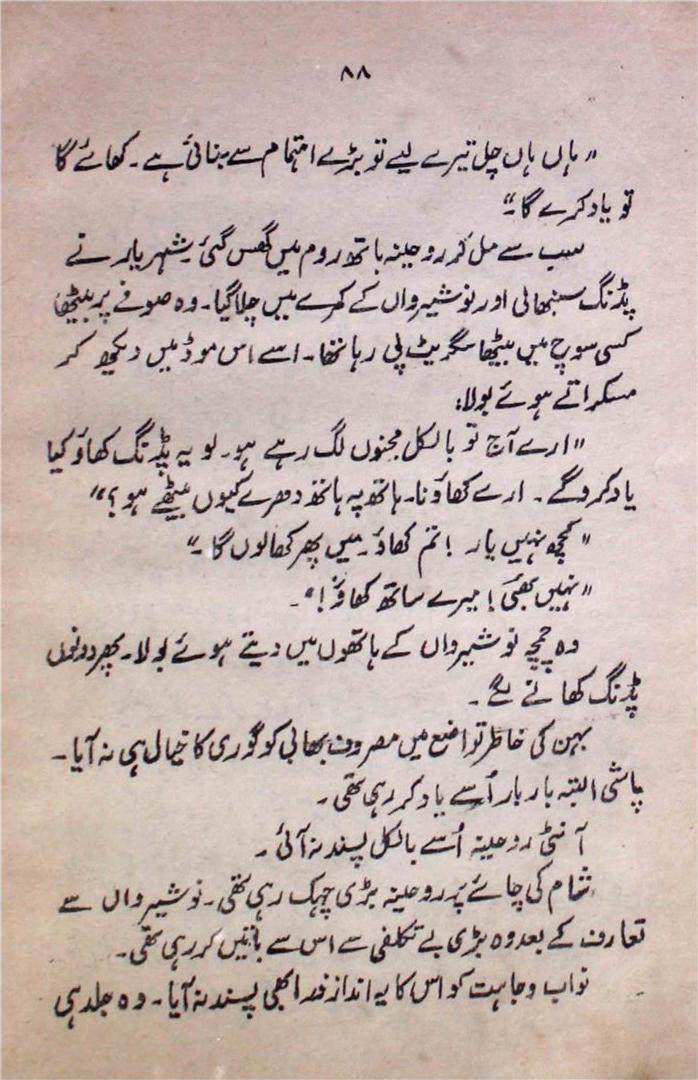 ۸۸
"ہاں ہاں چل تیرے لیے تو بڑے اہتمام سے بنائی ہے۔ کھائے گا
تو یاد کرے گا۔"
سب سے مل کر روحینہ باتھ روم میں گھس گئی۔ شہریار نے
پڈنگ سنبھالی اور نوشیرواں کے کمرے میں چلا گیا۔ وہ صوفے پر بیٹھا
کسی سوچ میں بیٹھا سگریٹ پی رہا تھا۔ اسے اس موڈ میں دیکھ کر
مسکراتے ہوئے بولا:
"ارے آج تو بالکل مجنوں لگ رہے ہو۔ لو یہ پڈنگ کھاؤ کیا
یاد کرو گے۔ ارے کھاؤ نا۔ ہاتھ پہ ہاتھ دھرے کیوں بیٹھے ہو؟"
"کچھ نہیں یار! تم کھاؤ۔ میں پھر کھا لوں گا۔"
"نہیں بھئی! میرے ساتھ کھاؤ!"۔
وہ چمچہ نوشیرواں کے ہاتھوں میں دیتے ہوئے بولا۔ پھر دونوں
پڈنگ کھانے لگے۔
بہن کی خاطر تواضع میں مصروف بھائی کو گوری کا خیال ہی نہ آیا۔
پاشی البتہ بار بار اُسے یاد کر رہی تھی۔
آنٹی روحینہ اُسے بالکل پسند نہ آئی۔
شام کی چائے پر روحینہ بڑی چہک رہی تھی۔ نوشیرواں سے
تعارف کے بعد وہ بڑی بے تکلفی سے اس سے باتیں کر رہی تھی۔
نواب وجاہت کو اس کا یہ انداز ذرا بھی پسند نہ آیا۔ وہ جلد ہی